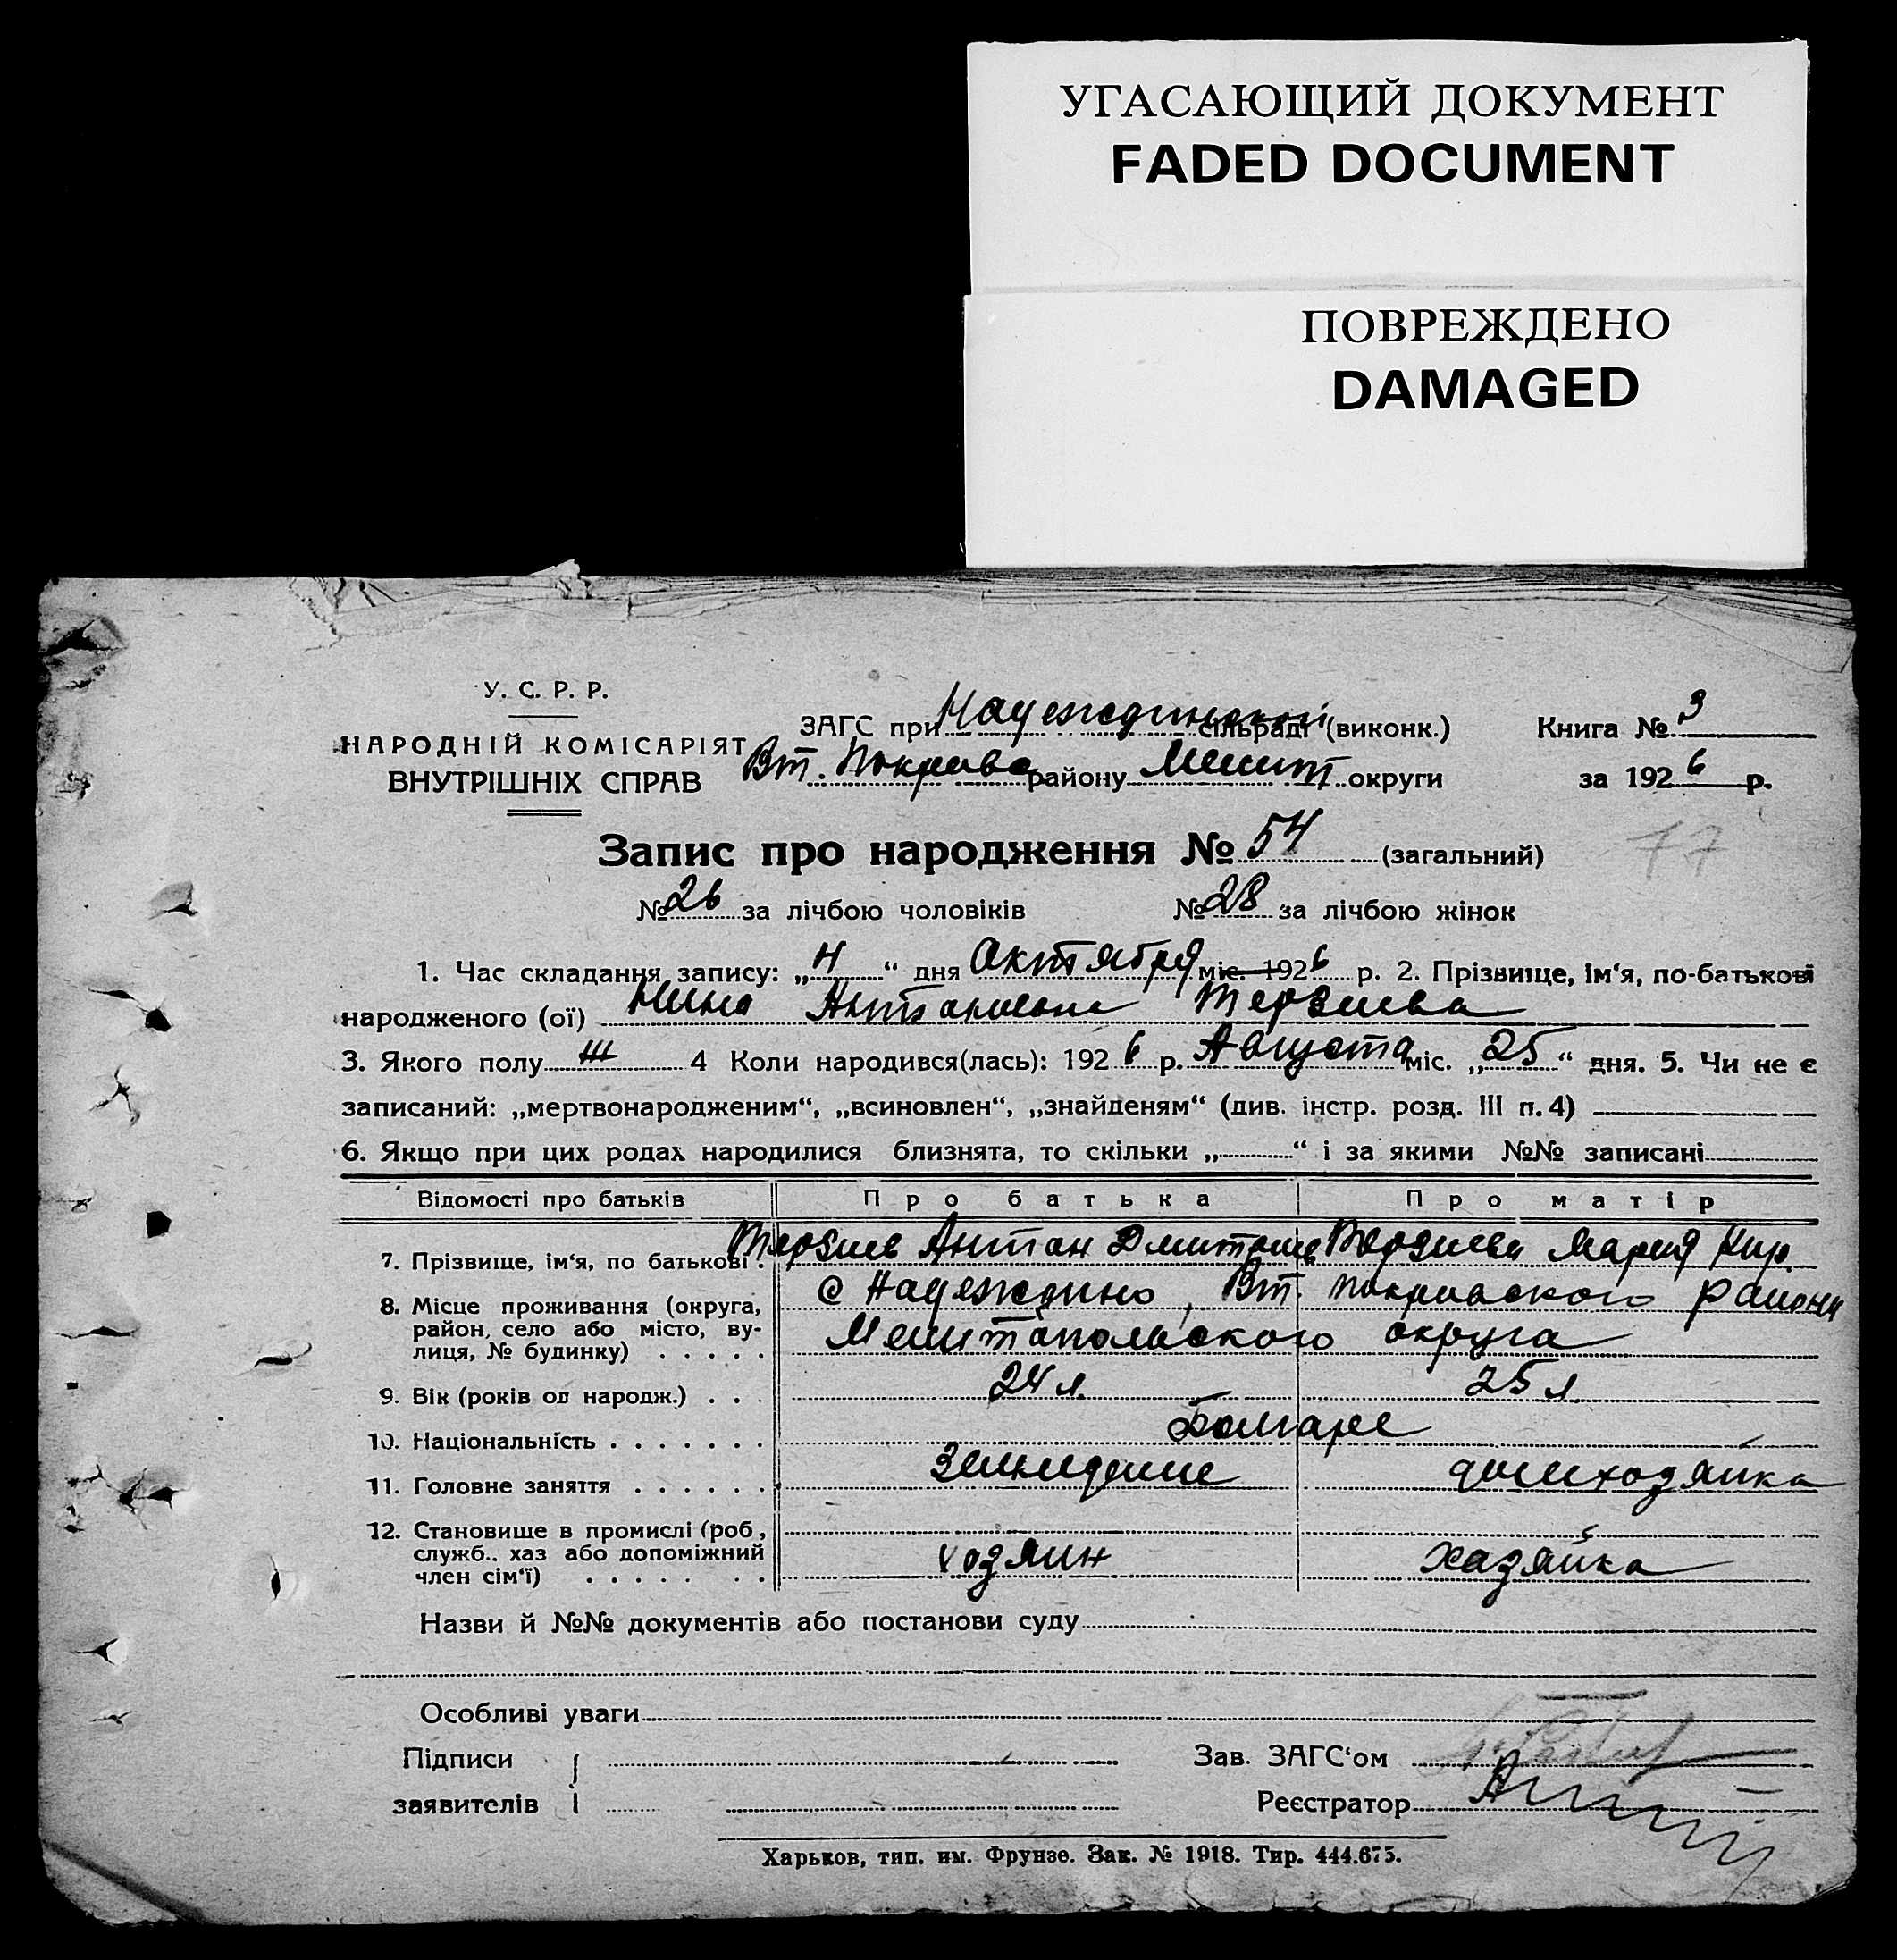 УГАСАЮЩИЙ ДОКУМЕНТ
FADED DOCUMENT
ПОВРЕЖДЕНО
DAMAGED
У. С. Р. Р.
НАРОДНІЙ КОМІСАРІЯТ
ВНУТРІШНІХ СПРАВ
ЗАГС при Надеждинской сільраді (виконк.) Книга № 3
Вт. Покровс району Мелит округи за 1926 р.
77
Запис про народження № 54 (загальний)
№ 26 за лічбою чоловіків № 28 за лічбою жінок
1. Час складання запису: „4“ дня Октября міс. 1926 р. 2. Прізвище, ім‘я, по-батькові
народженого (ої) Нина Антоновна Терзиева
3. Якого полу ж 4 Коли народився(лась): 1926 р. Августа міс. „25“ дня. 5. Чи не є
записаний: „мертвонародженим“, „всиновлен“, „знайденям“ (див. інстр. розд. III п. 4)
6. Якщо при цих родах народилися близнята, то скільки „ “ і за якими №№ записані
Відомості про батьків Про батька Про матір
7. Прізвище, ім‘я, по батькові . Терзиев Антон Дмитриев Терзиева Мария Кир.
8. Місце проживання (округа, район, село або місто, вулиця, № будинку) . . . . .
с Надеждино, Вт. Покровского района
Мелитопольского округа
9. Вік (років од народж.) . . . 24 л. 25 л
10. Національність . . . . . . . Болгаре
11. Головне заняття . . . . . . Земледелие домхозяйка
12. Становище в промислі (роб, служб.. хаз або допоміжний член сім‘ї) . . . . . . . хозяин хазяйка
Назви й №№ документів або постанови суду
Особливі уваги
Підписи заявителів
Зав. ЗАГС‘ом
Реєстратор
Харьков, тип. им. Фрунзе. Зак. № 1918. Тир. 444.675.